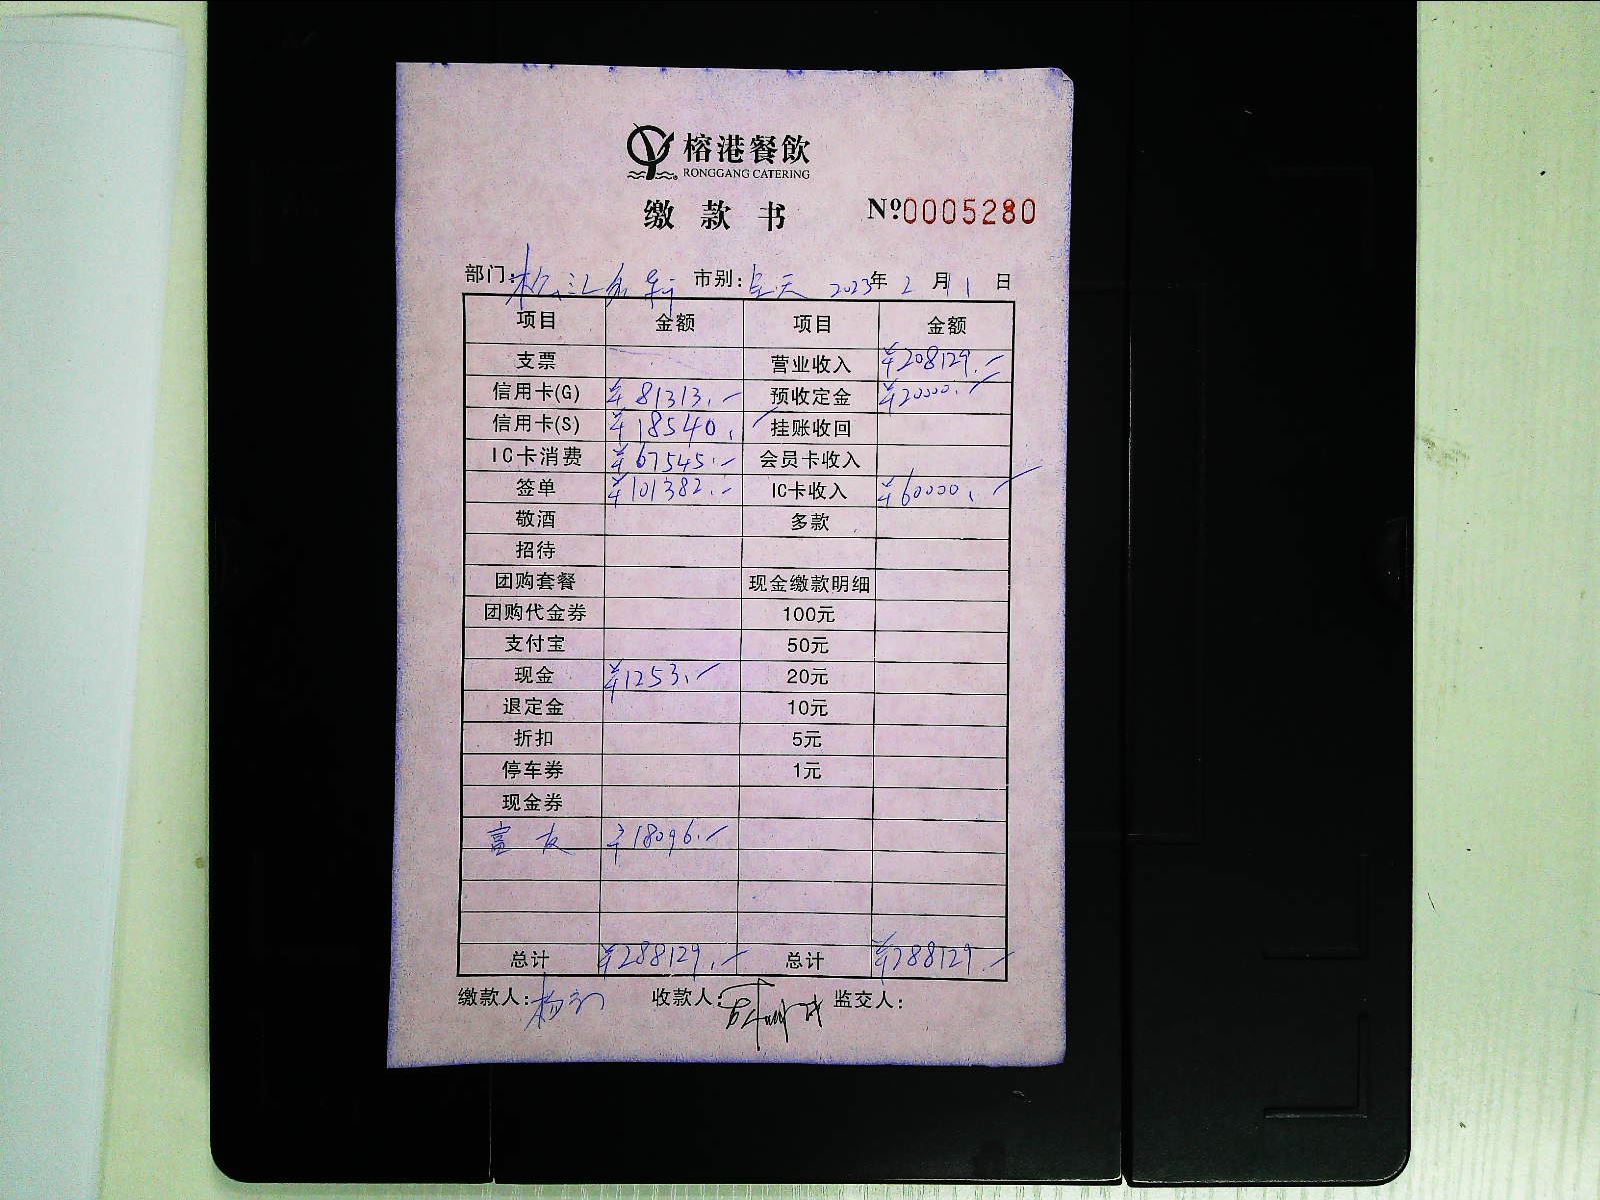 榕港餐飲
RONGGANG CATERING
缴款书 №0005280
部门: 市别:全天 2023年2月1日
项目 金额 项目 金额
支票 营业收入 ¥208129.-
信用卡(G) ¥81313.- 预收定金 ¥20000.-
信用卡(S) ¥18540.- 挂账收回
IC卡消费 ¥67545.- 会员卡收入
签单 ¥101382.- IC卡收入 ¥60000.-
敬酒 多款
招待
团购套餐 现金缴款明细
团购代金券 100元
支付宝 50元
现金 ¥1253.- 20元
退定金 10元
折扣 5元
停车券 1元
现金券
富友 ¥18096.-
总计 ¥288129.- 总计 ¥288129.-
缴款人: 收款人: 监交人: